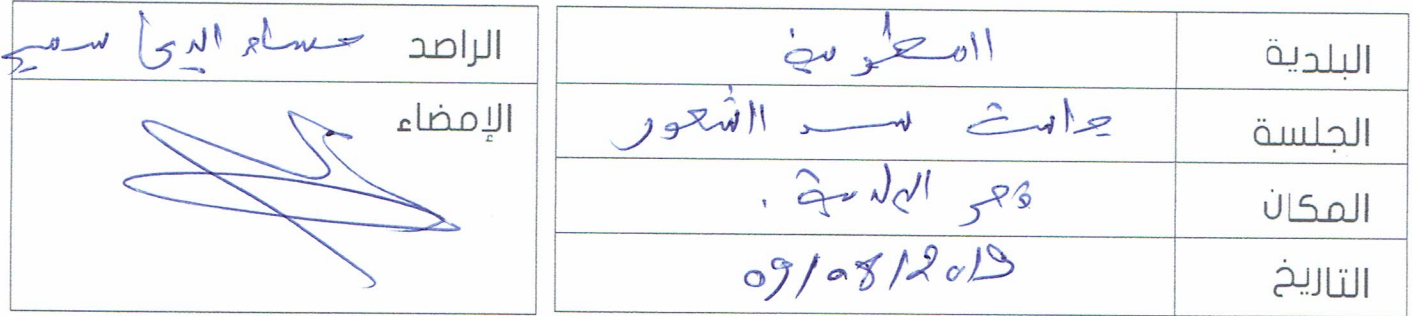 البلدية
الجلسة جلسة سد الشغور
المكان قصر البلدية .
التاريخ 09/08/2019
الراصد حسام الدين
الإمضاء